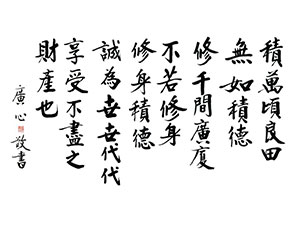 積萬頃良田
無如積德
修千間廣廈
不若修身
修身積德
誠為世世代代
享受不盡之
財產也
廣心敬書